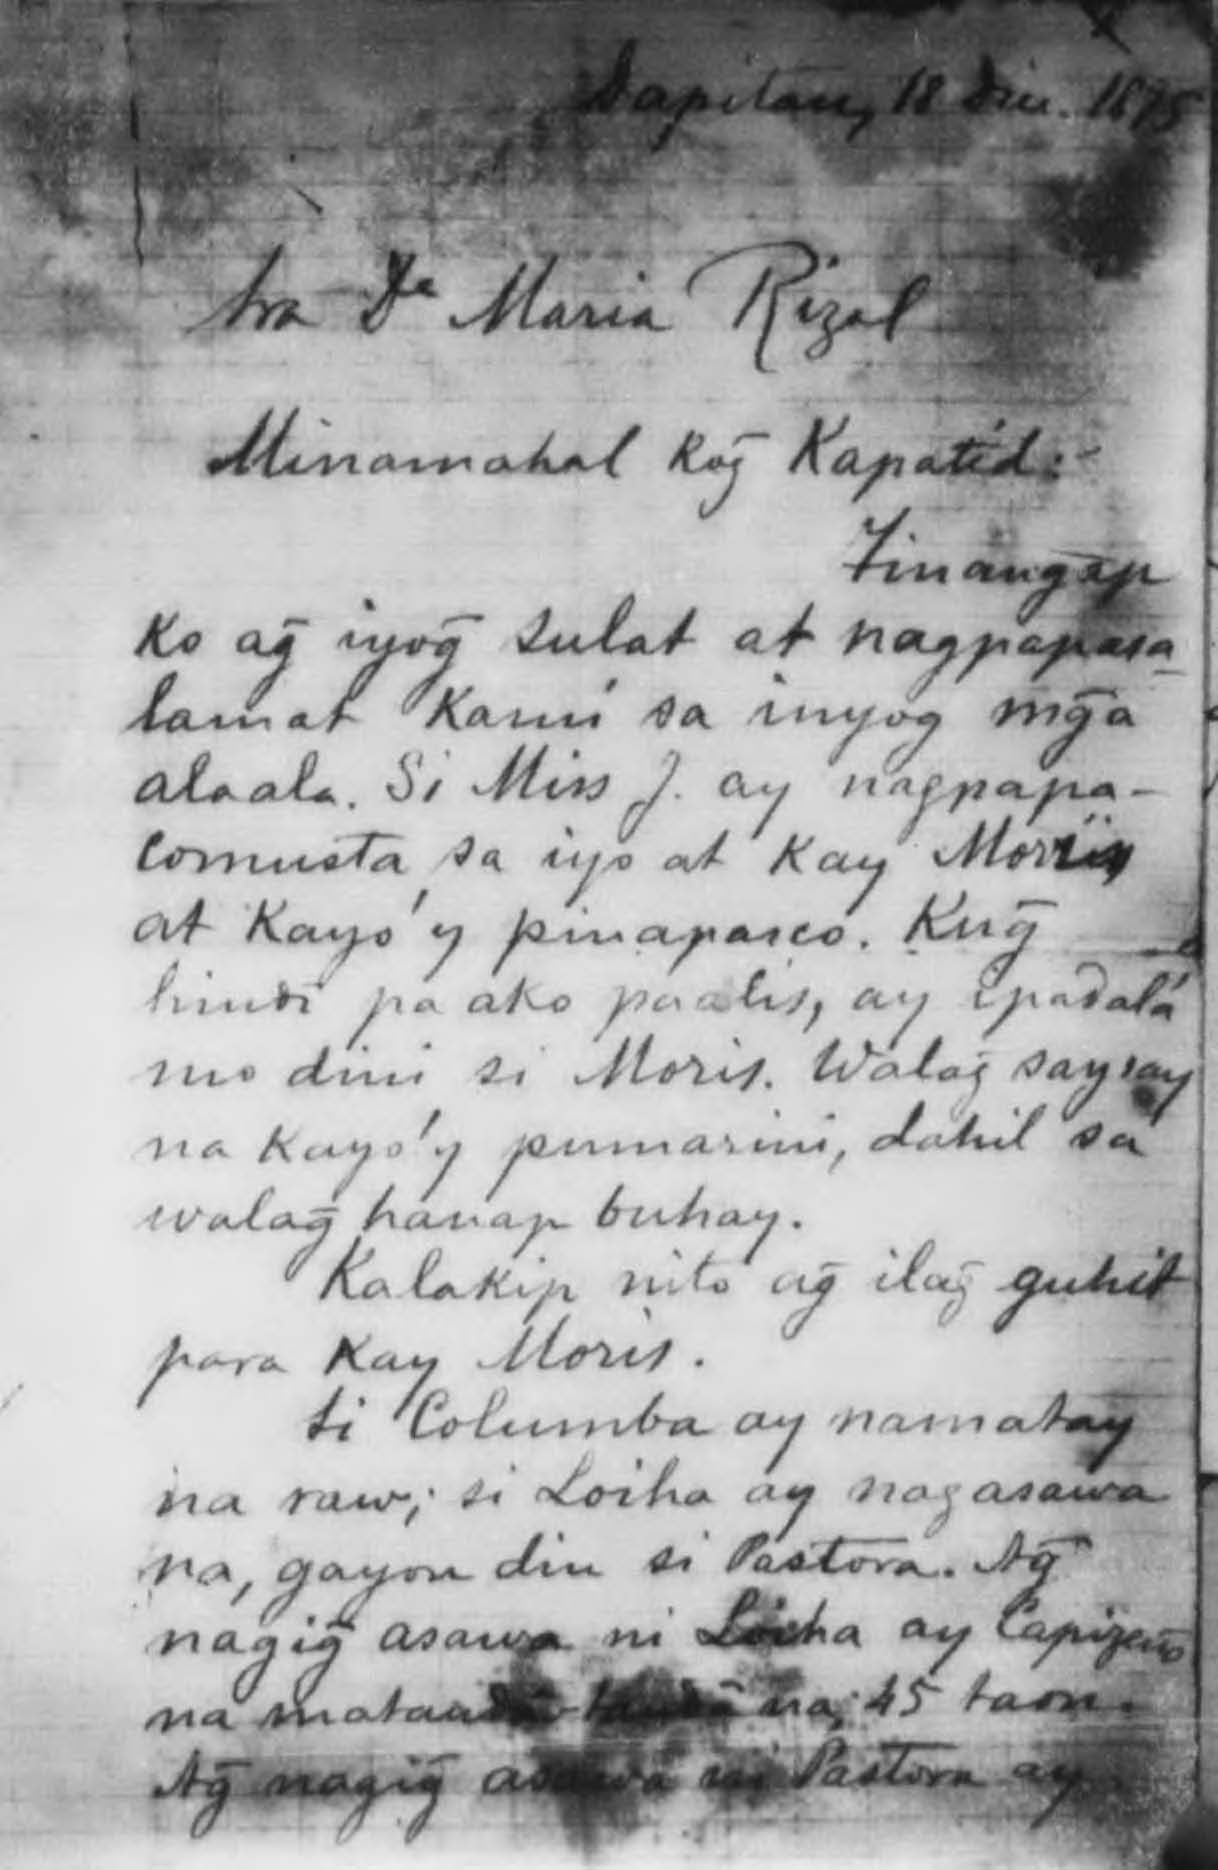 Dapitan, 18 Dic. 1895
Sra Dª Maria Rizal
Minamahal kog̃ Kapatid:-
Tinangap
ko ag̃ iyog̃ sulat at nagpapasa
lamat kamí sa inyog mg̃a
alaala. Si Miss J. ay nagpapa-
comusta sa iyo at kay Moris
at kayo'y pinapasco. Kug̃
hindi pa ako paalis, ay ipadalá
mo dini si Moris. Walag̃ saysay
na kayo'y pumarini, dahil sa
walag̃ hanap buhay.
Kalakip nito ag̃ ilag̃ guhit
para kay Moris.
Si Columba ay namatay
na raw; si Loiha ay nagasawa
na, gayon din si Pastora. Ag̃
nagig̃ asawa ni Loiha ay Capizeño
na matandâ-tandâ na; 45 taon.
Ag̃ nagig̃ asawa ni Pastora ay